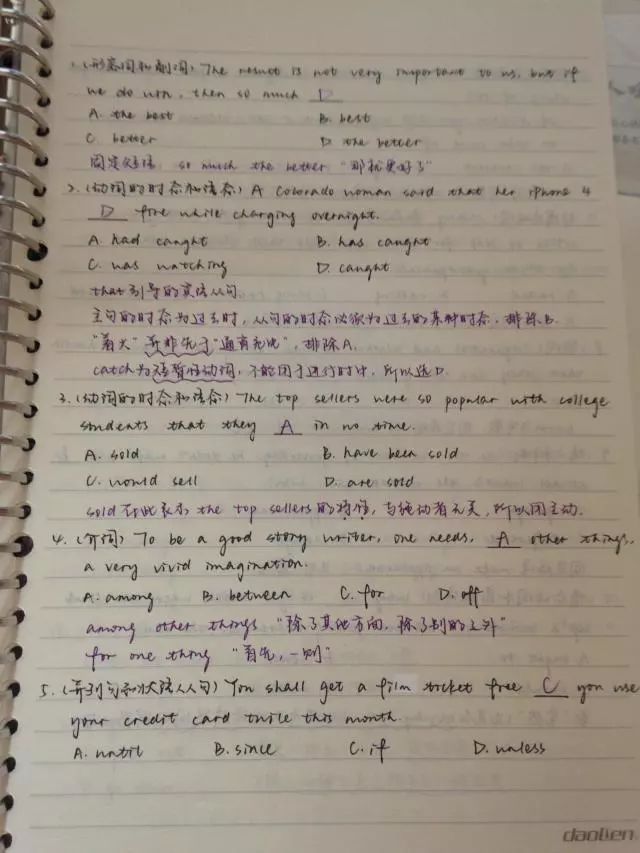 1.(形容词和副词) The result is not very important to us, but if
we do win, then so much D
A. the best B. best
C. better D. the better
固定短语, so much the better "那就更好了"
2.(动词的时态和语态) A Colorado woman said that her iphone 4
D fire while charging overnight.
A. had caught B. has caught
C. was catching D. caught
that引导的宾语从句
主句的时态为过去时,从句的时态必须为过去的某种时态.排除B.
"着火"并非先于"通宵充电",排除A.
catch为短暂性动词,不能用于进行时中,所以选D.
3.(动词的时态和语态) The top sellers were so popular with college
students that they A in no time.
A. sold B. have been sold
C. would sell D. are sold
sold在此表示 the top sellers的特性,与施动者无关,所以用主动.
4.(介词) To be a good story writer, one needs, A other things,
a very vivid imagination.
A. among B. between C. for D. off
among other things "除了其他方面,除了别的之外"
for one thing "首先,一则"
5.(并列句和状语从句) You shall get a film ticket free C you use
your credit card twice this month.
A. until B. since C. if D. unless
daolien